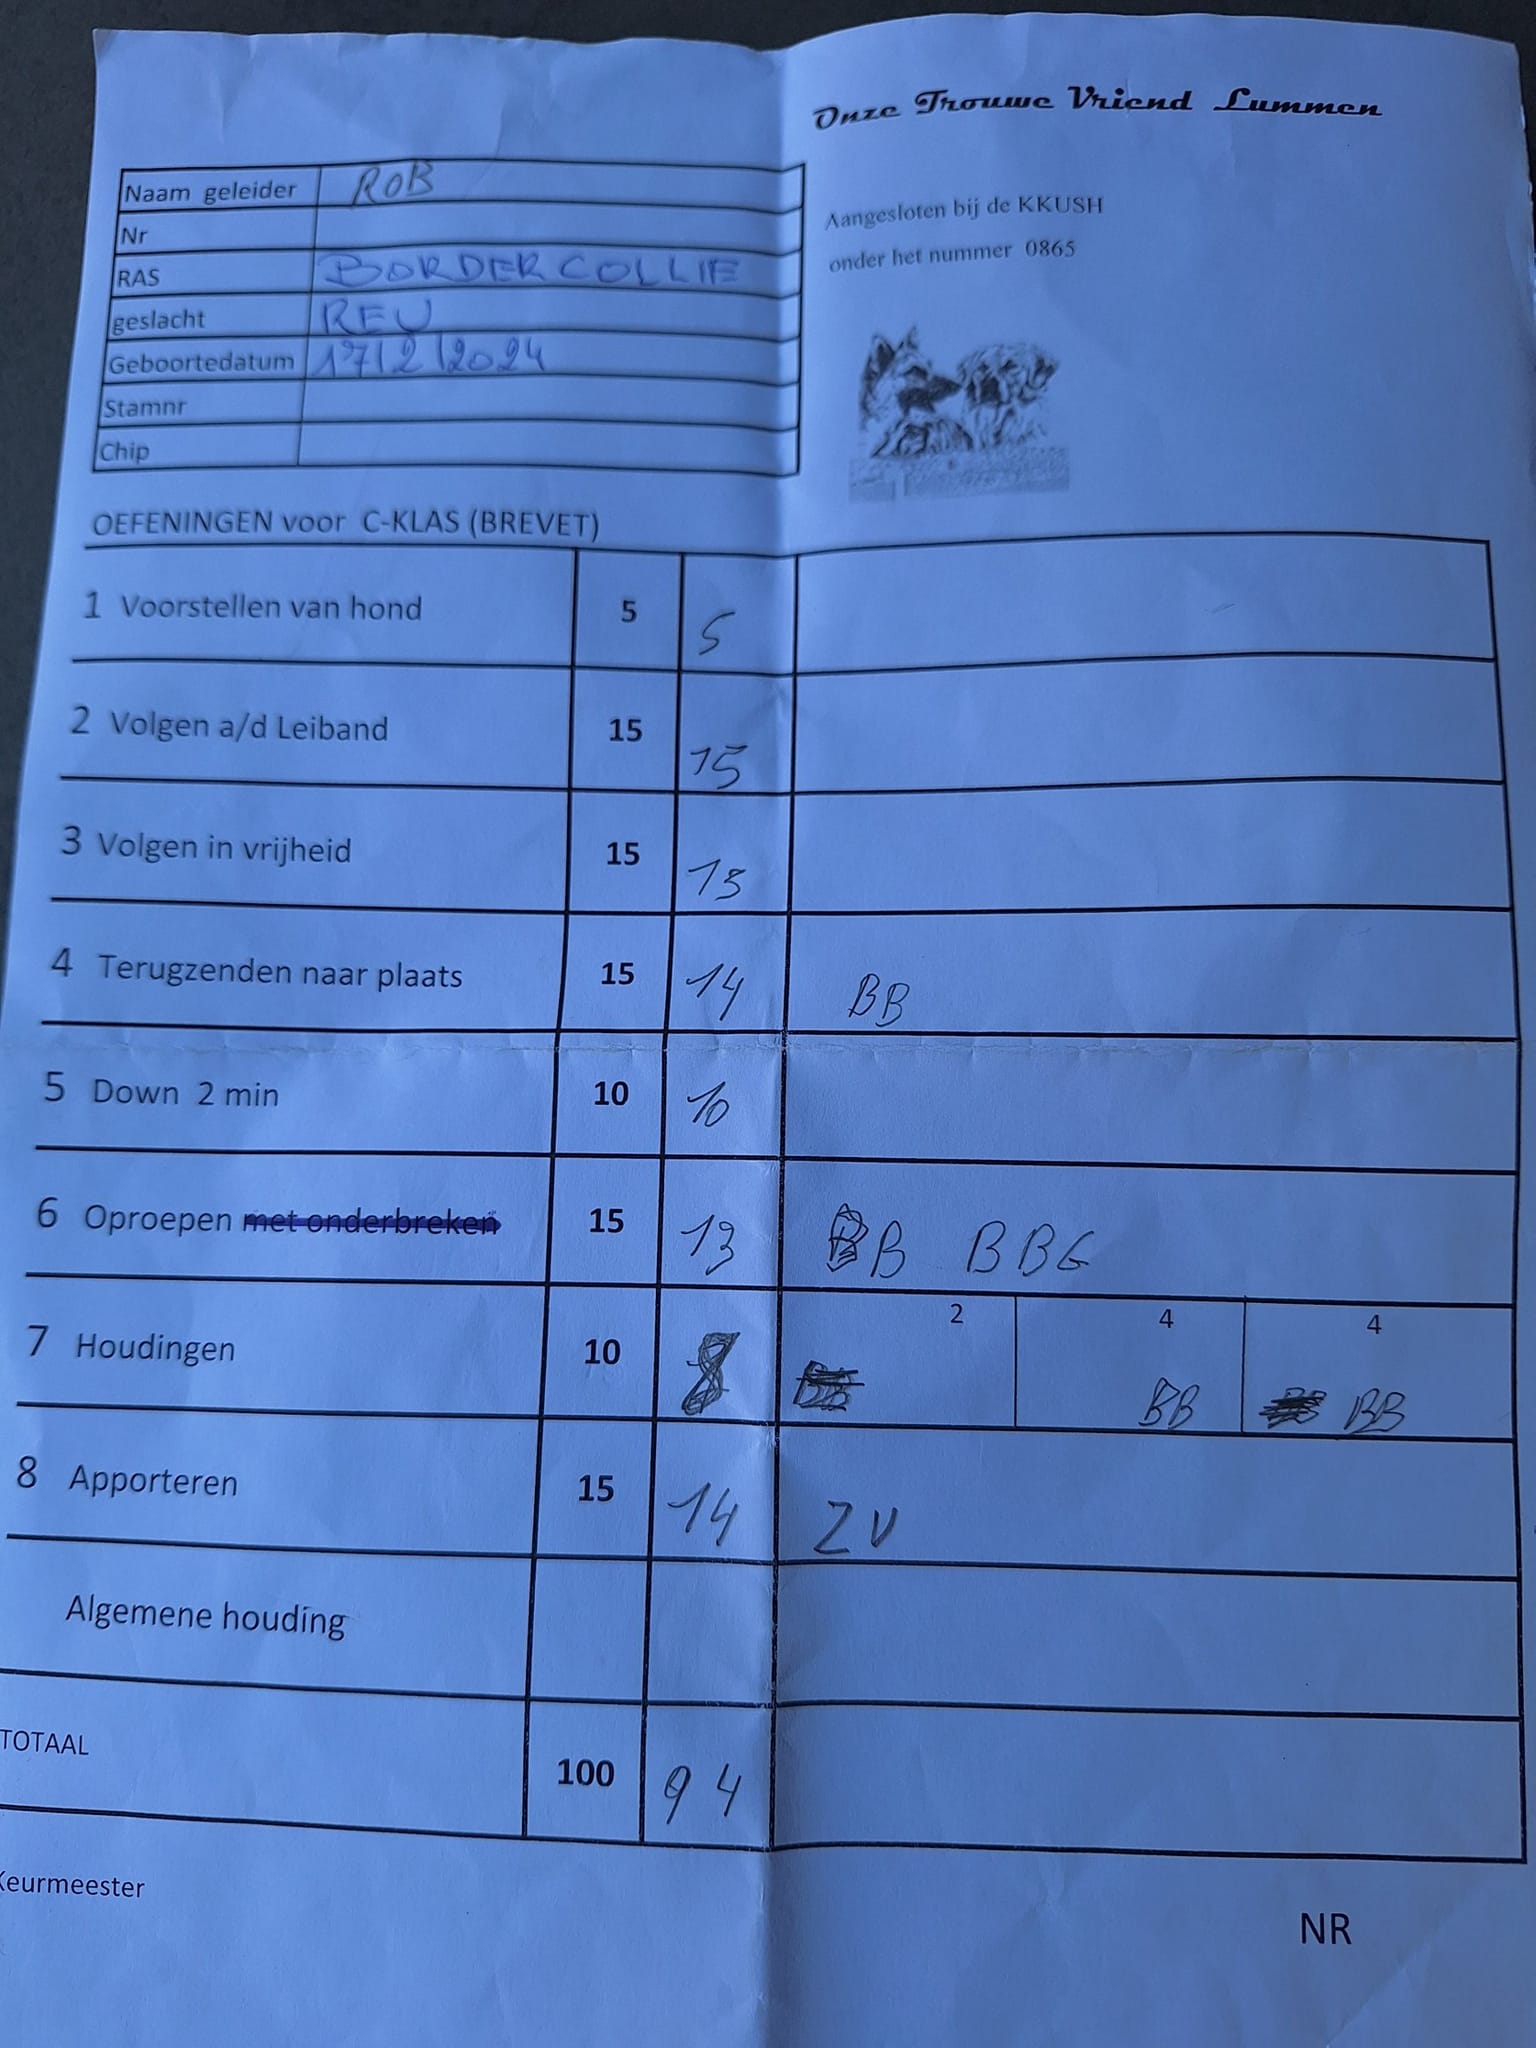 Onze Trouwe Vriend Lummen
Naam geleider ROB
Nr
RAS BORDER COLLIE
geslacht REU
Geboortedatum 17/2/2024
Stamnr
Chip
Aangesloten bij de KKUSH
onder het nummer 0865
OEFENINGEN voor C-KLAS (BREVET)
1 Voorstellen van hond 5 5
2 Volgen a/d Leiband 15 15
3 Volgen in vrijheid 15 15
4 Terugzenden naar plaats 15 14 BB
5 Down 2 min 10 10
6 Oproepen met onderbreken 15 13 BB BBG
7 Houdingen 10 8 2 4 BB 4 BB
8 Apporteren 15 14 ZV
Algemene houding
TOTAAL 100 94
Keurmeester
NR